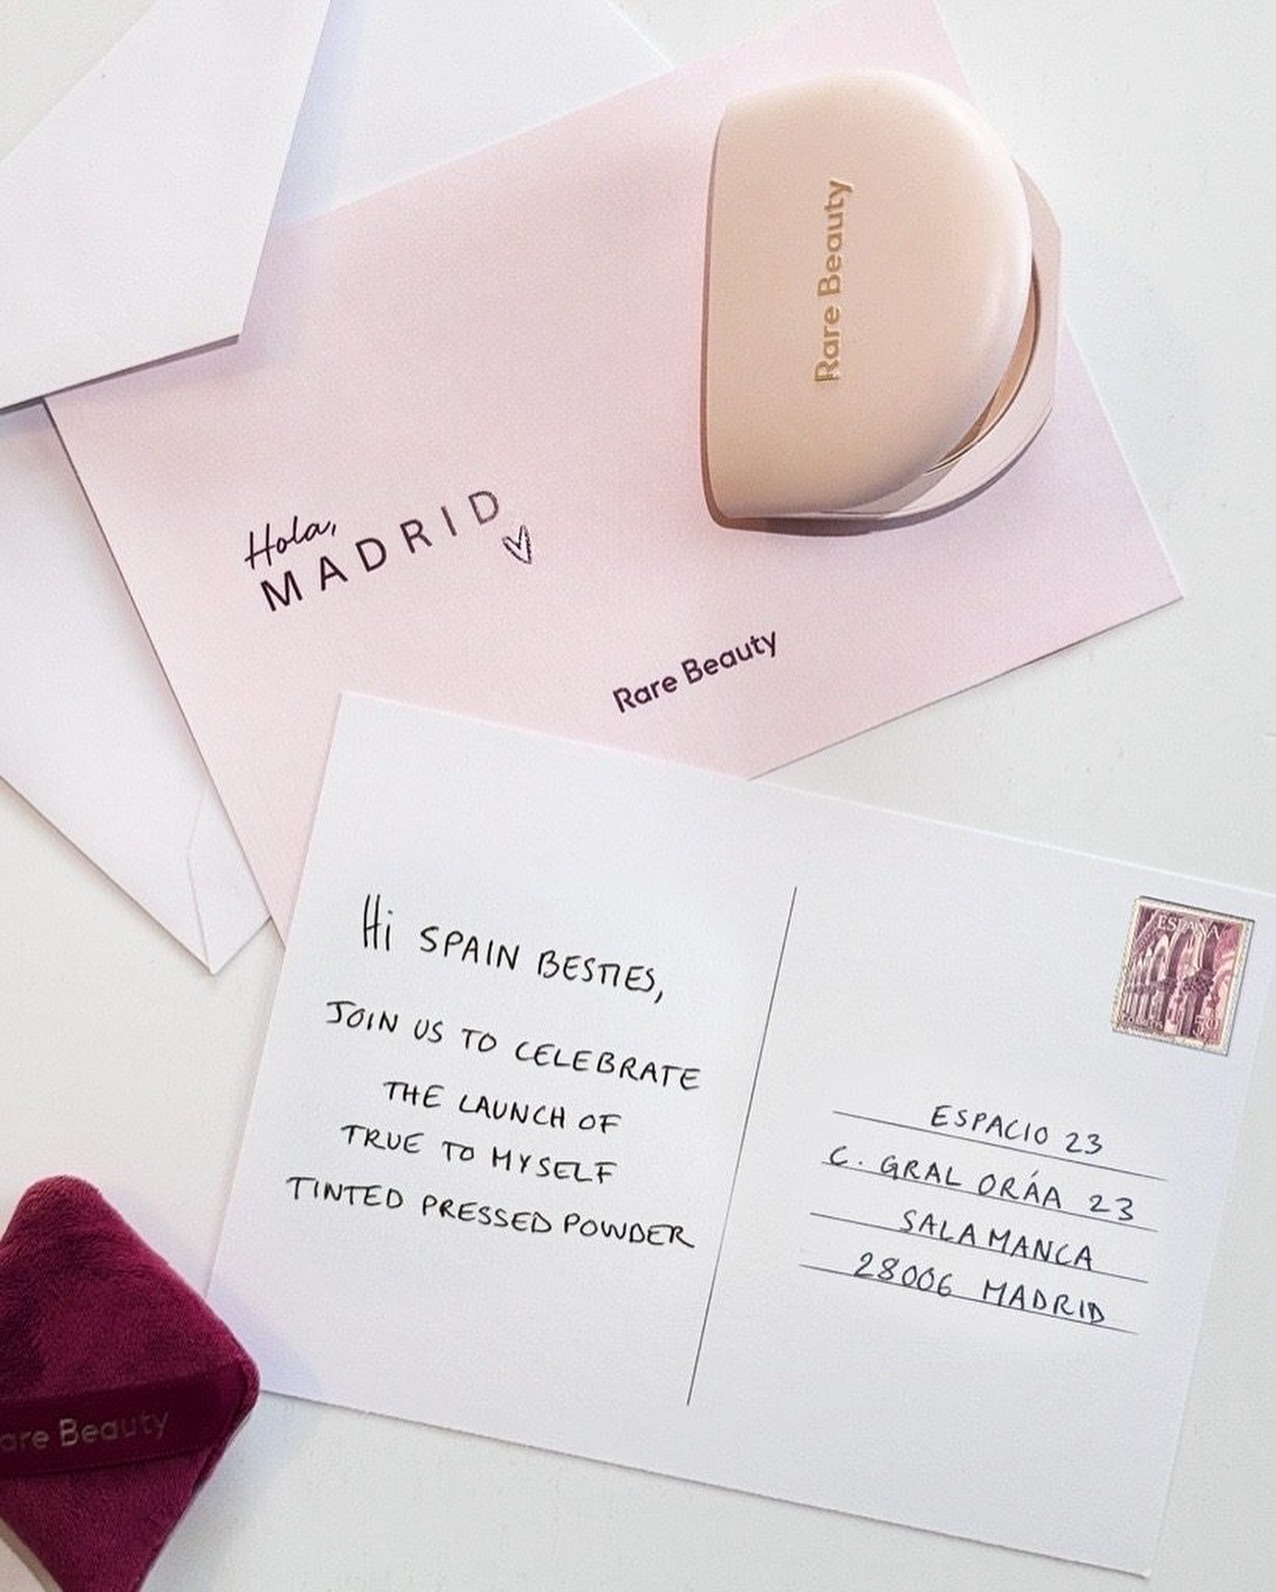 Rare Beauty
Hola,
MADRID
Rare Beauty
Hi SPAIN BESTIES,
JOIN US TO CELEBRATE
THE LAUNCH OF
TRUE TO MYSELF
TINTED PRESSED POWDER
ESPAÑA
ESPACIO 23
C. GRAL ORÁA 23
SALAMANCA
28006 MADRID
are Beauty